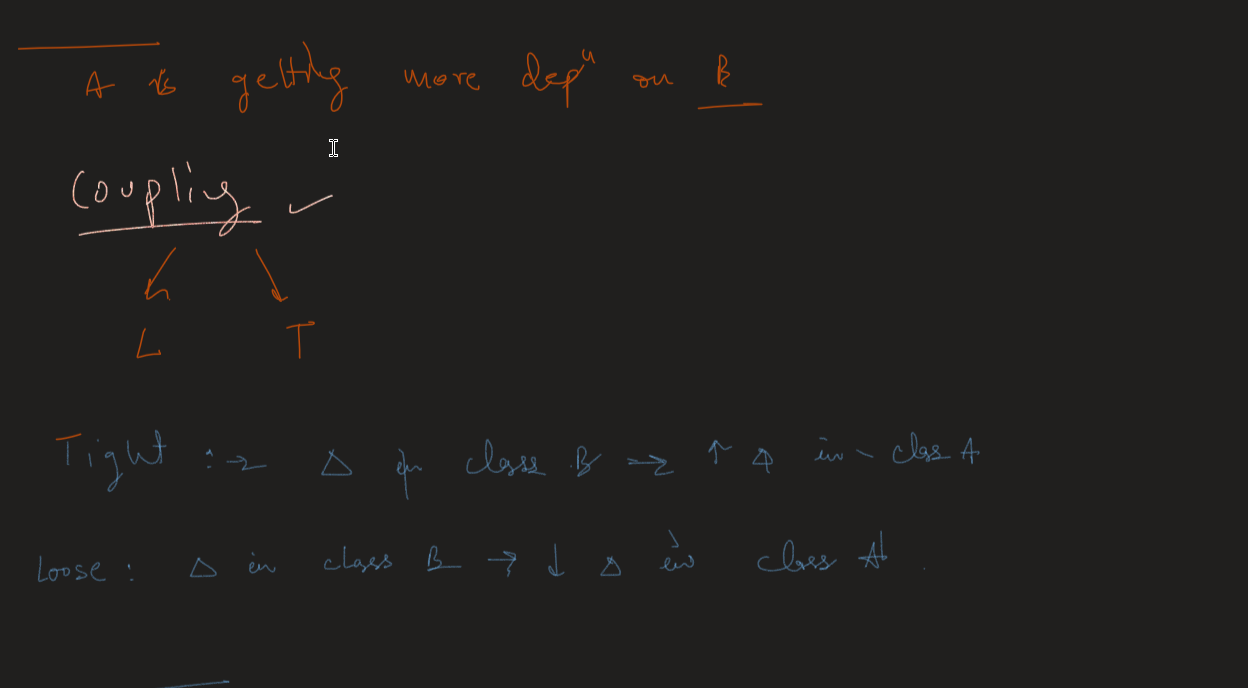 A is getting more depⁿ on B
Coupling ✓
L T
Tight :→ Δ in class B → ↑ Δ in class A
Loose : Δ in class B → ↓ Δ in class A.